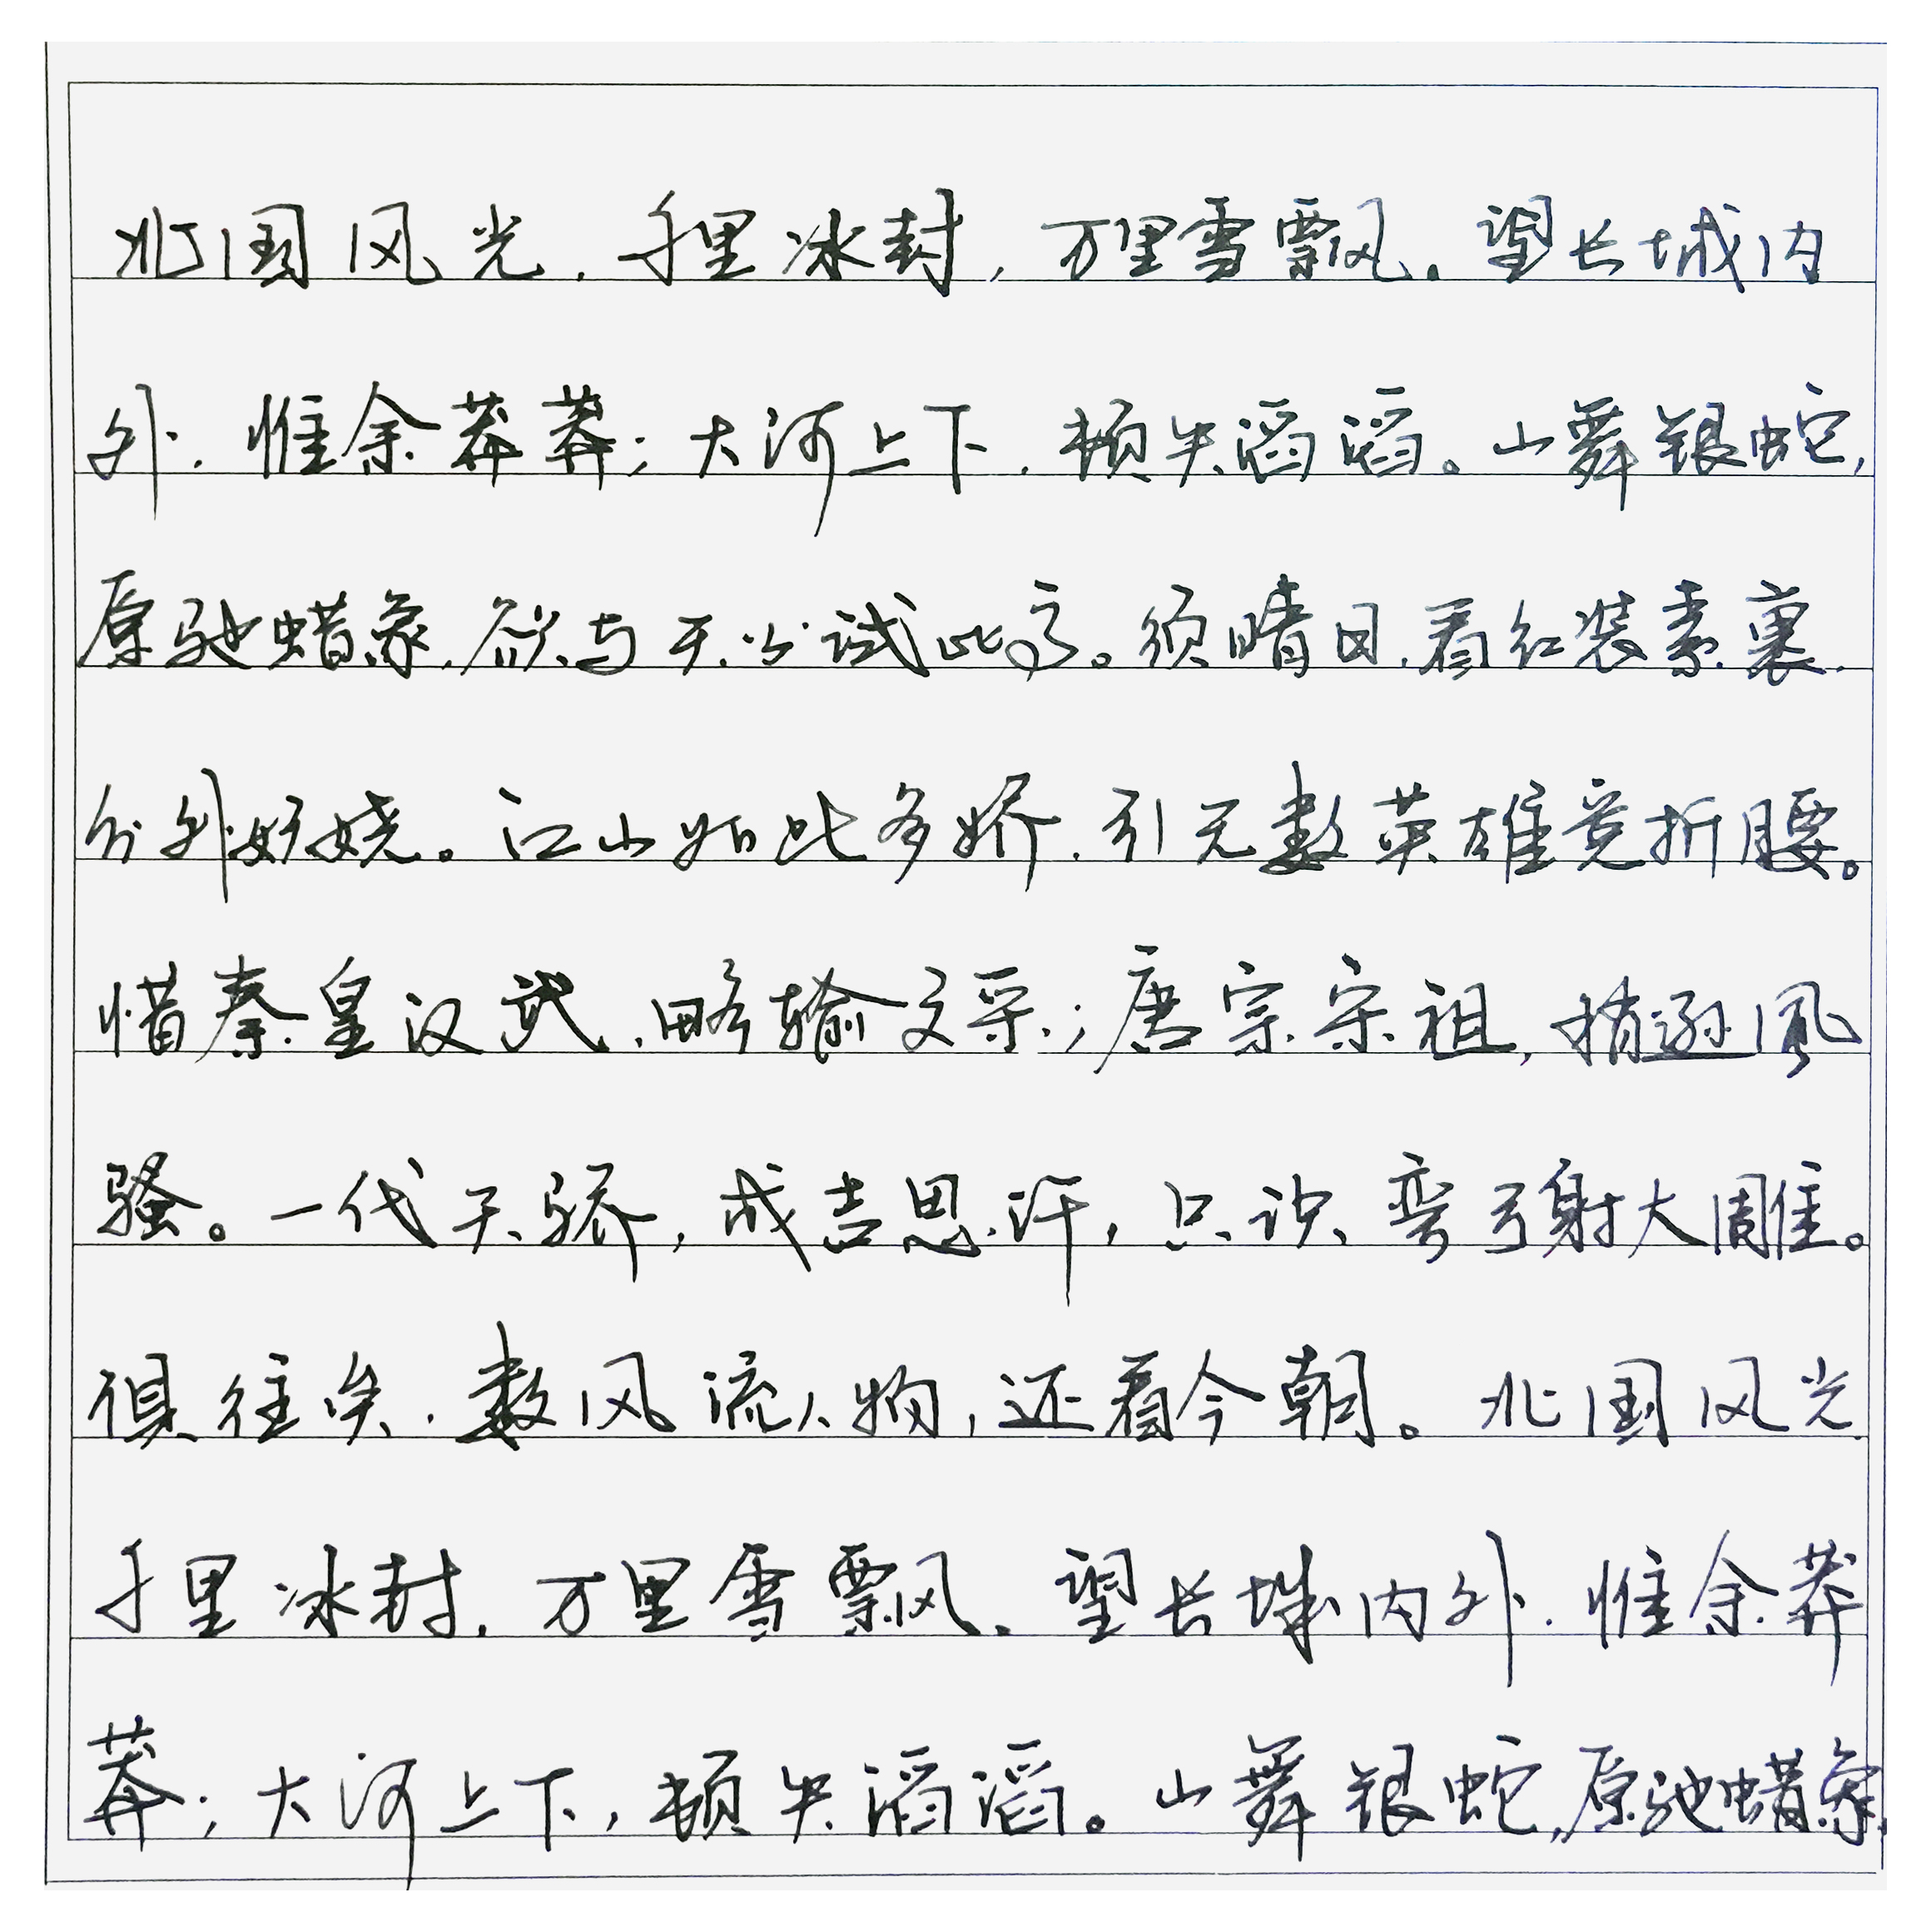 北国风光，千里冰封，万里雪飘。望长城内
外，惟余莽莽；大河上下，顿失滔滔。山舞银蛇，
原驰蜡象，欲与天公试比高。须晴日，看红装素裹，
分外妖娆。江山如此多娇，引无数英雄竞折腰。
惜秦皇汉武，略输文采；唐宗宋祖，稍逊风
骚。一代天骄，成吉思汗，只识弯弓射大雕。
俱往矣，数风流人物，还看今朝。北国风光，
千里冰封，万里雪飘。望长城内外，惟余莽
莽；大河上下，顿失滔滔。山舞银蛇，原驰蜡象，